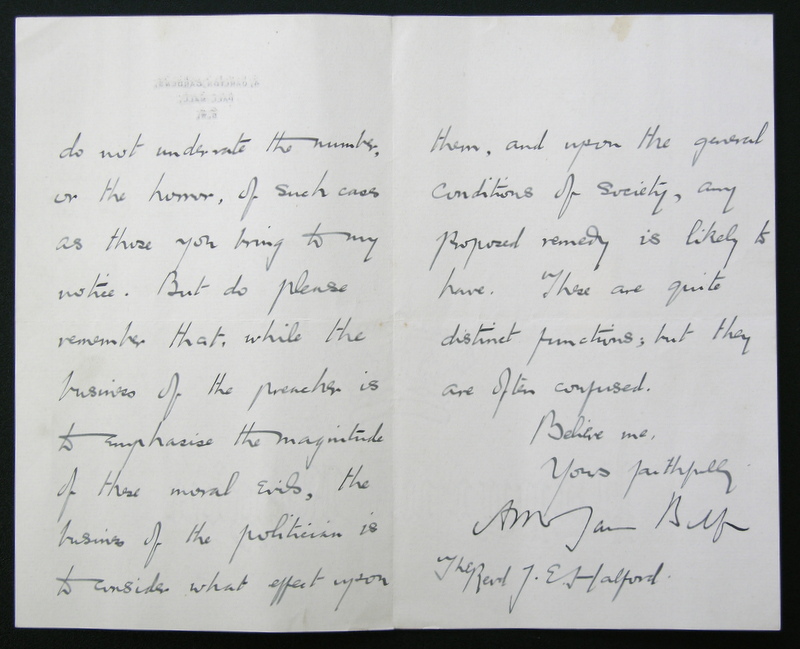 do not underrate the number,
or the horror, of such cases
as those you bring to my
notice. But do please
remember that, while the
business of the preacher is
to emphasise the magnitude
of these moral evils, the
business of the politician is
to consider what effect upon
them, and upon the general
conditions of society, any
proposed remedy is likely to
have. These are quite
distinct functions; but they
are often confused.
Believe me,
Yours faithfully
Arthur James Balfour
The Revd J. E. Halford.